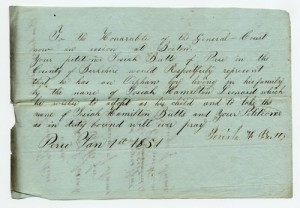 To the Honorable of the General-Court
now in session at Boston,
Your petitioner Josiah Butts of Peru in the
County of Berkshire would Respectfully represent
that he has an Orphan boy living in his family
by the name of Josiah Hamilton Lenard which
he wishes to adopt as his child and to take the
name of Josiah Hamilton Butts and Your Petitioner
as in duty bound will ever pray
Peru Jan 1st 1851